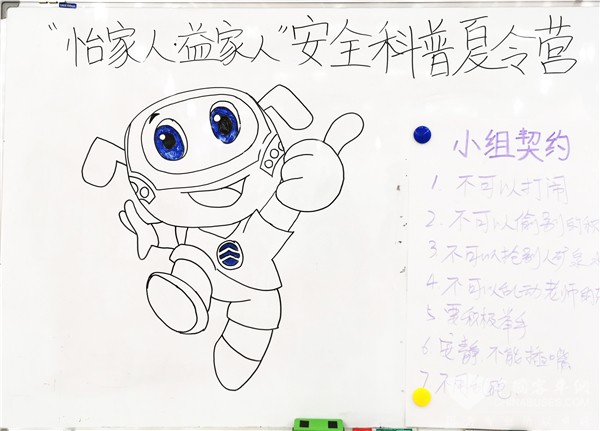 “怡家人·益家人”安全科普夏令营
小组契约
1 不可以打闹
2. 不可以偷别的
3 不可以抢别人矿泉水
4 不可以乱动老师的
5 要积极举手
6 安静 不能插嘴
7 不可